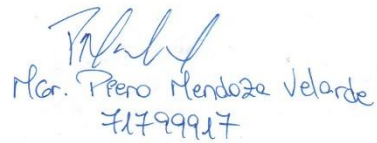 Mgr. Piero Mendoza Velarde
71799917